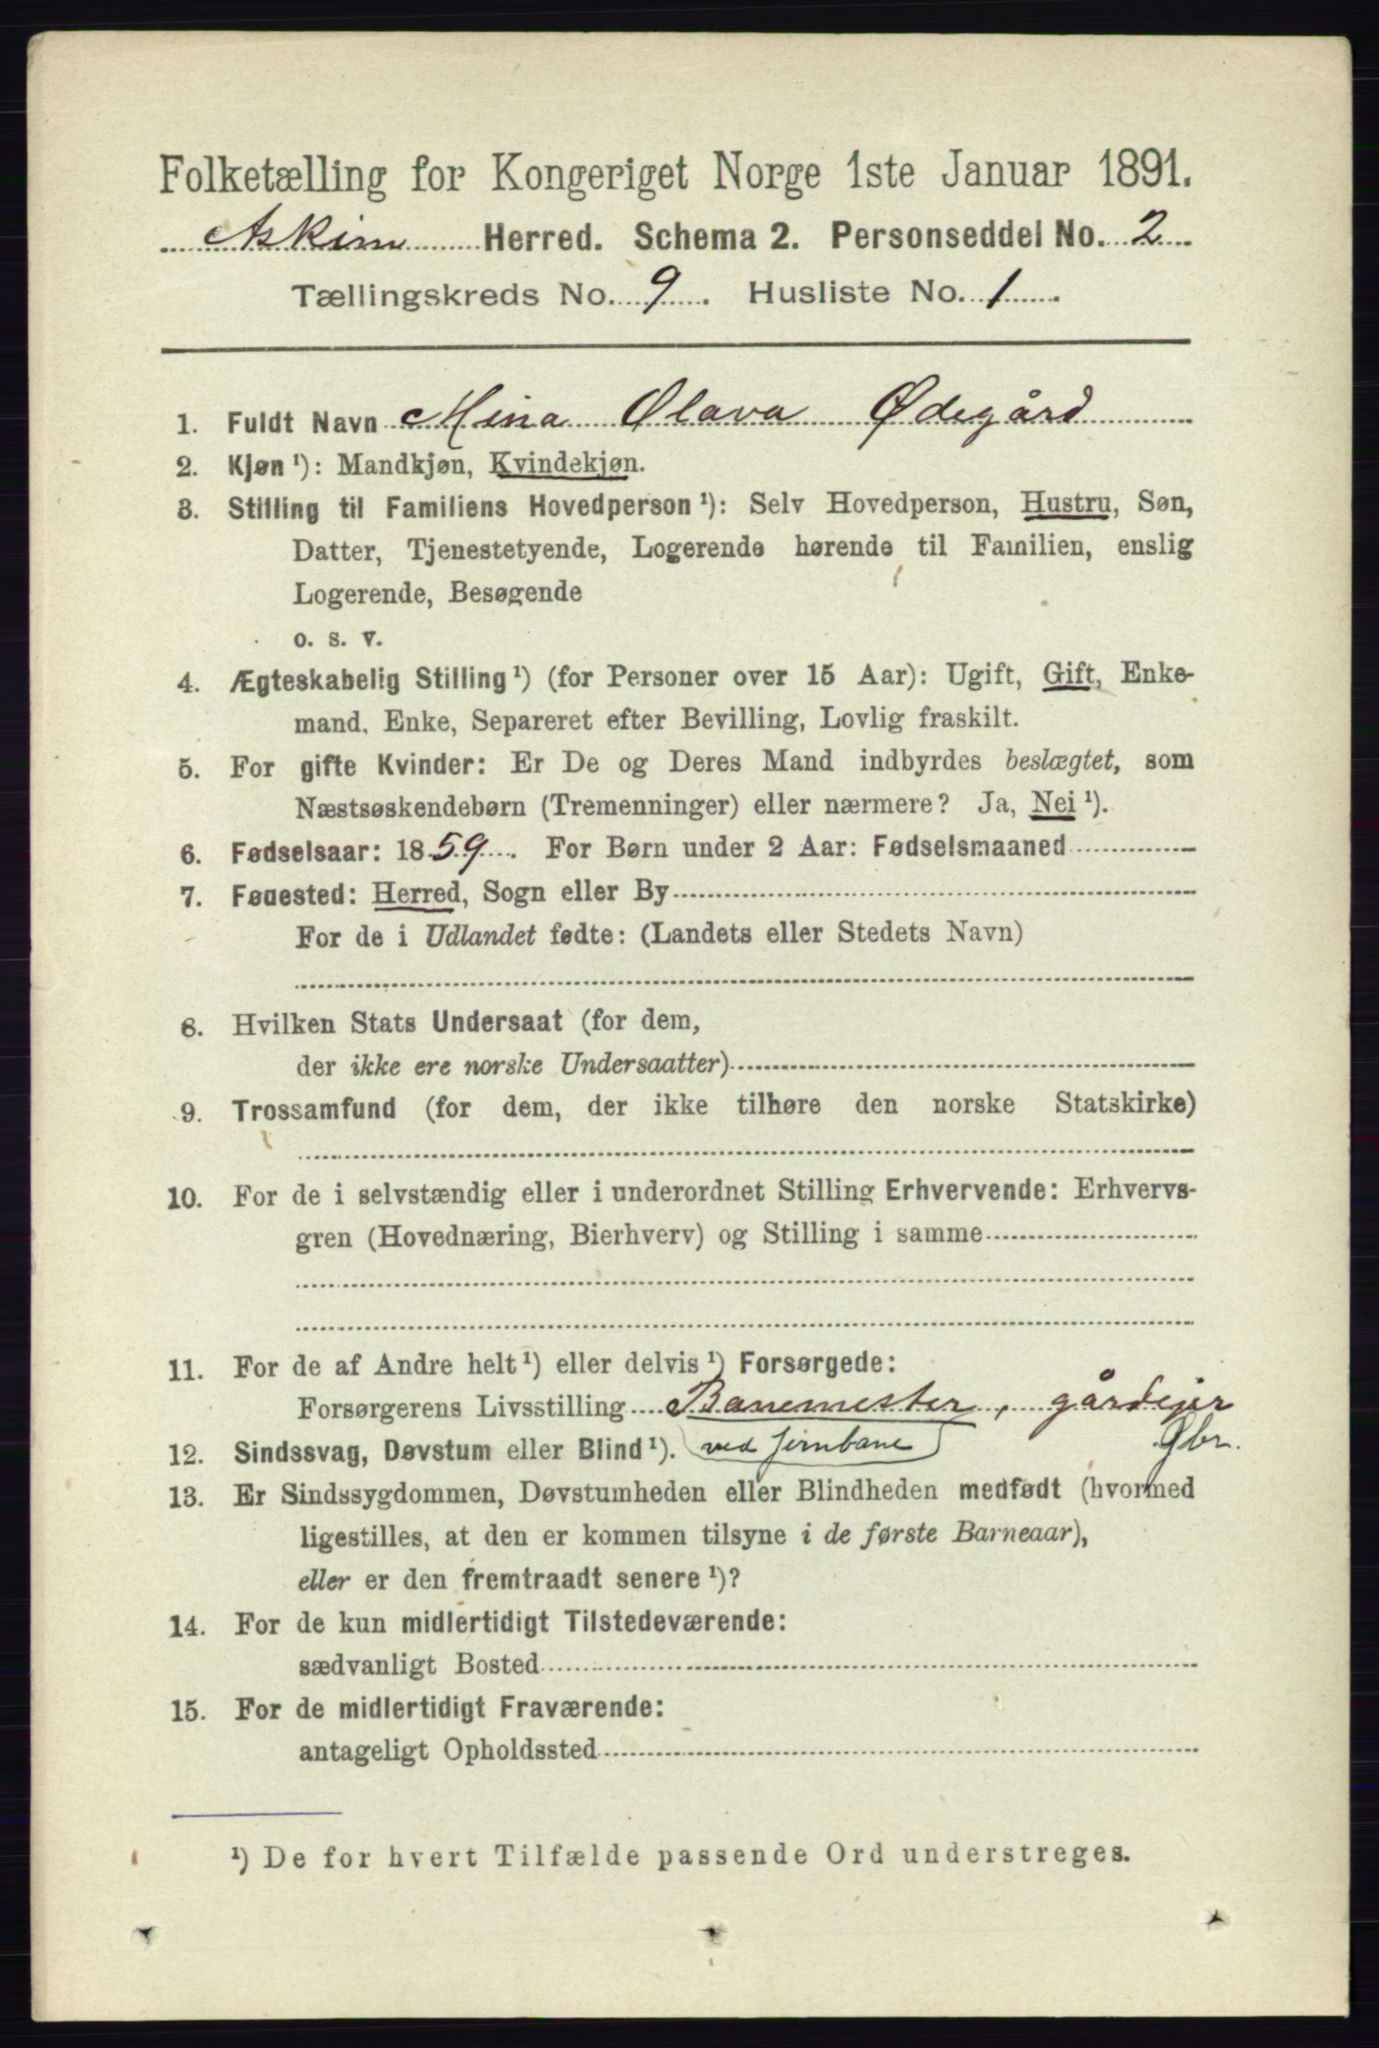 Folketælling for Kongeriget Norge 1ste Januar 1891.
Askim Herred. Schema 2. Personseddel No. 2
Tællingskreds No. 9. Husliste No. 1.
1. Fuldt Navn Mina Olava Ødegård
2. Kjøn¹): Mandkjøn, Kvindekjøn.
3. Stilling til Familiens Hovedperson¹): Selv Hovedperson, Hustru, Søn,
Datter, Tjenestetyende, Logerende hørende til Familien, enslig
Logerende, Besøgende
o. s. v.
4. Ægteskabelig Stilling¹) (for Personer over 15 Aar): Ugift, Gift, Enke-
mand, Enke, Separeret efter Bevilling, Lovlig fraskilt.
5. For gifte Kvinder: Er De og Deres Mand indbyrdes beslægtet, som
Næstsøskendebørn (Tremenninger) eller nærmere? Ja, Nei¹).
6. Fødselsaar: 1859. For Børn under 2 Aar: Fødselsmaaned
7. Fødested: Herred, Sogn eller By
For de i Udlandet fødte: (Landets eller Stedets Navn)
8. Hvilken Stats Undersaat (for dem,
der ikke ere norske Undersaatter)
9. Trossamfund (for dem, der ikke tilhøre den norske Statskirke)
10. For de i selvstændig eller i underordnet Stilling Erhvervende: Erhvervs-
gren (Hovednæring, Bierhverv) og Stilling i samme
11. For de af Andre helt¹) eller delvis¹) Forsørgede:
Forsørgerens Livsstilling Banemester, gårdejer
12. Sindssvag, Døvstum eller Blind¹). ved jernbane Gbr.
13. Er Sindssygdommen, Døvstumheden eller Blindheden medfødt (hvormed
ligestilles, at den er kommen tilsyne i de første Barneaar),
eller er den fremtraadt senere¹)?
14. For de kun midlertidigt Tilstedeværende:
sædvanligt Bosted
15. For de midlertidigt Fraværende:
antageligt Opholdssted
¹) De for hvert Tilfælde passende Ord understreges.